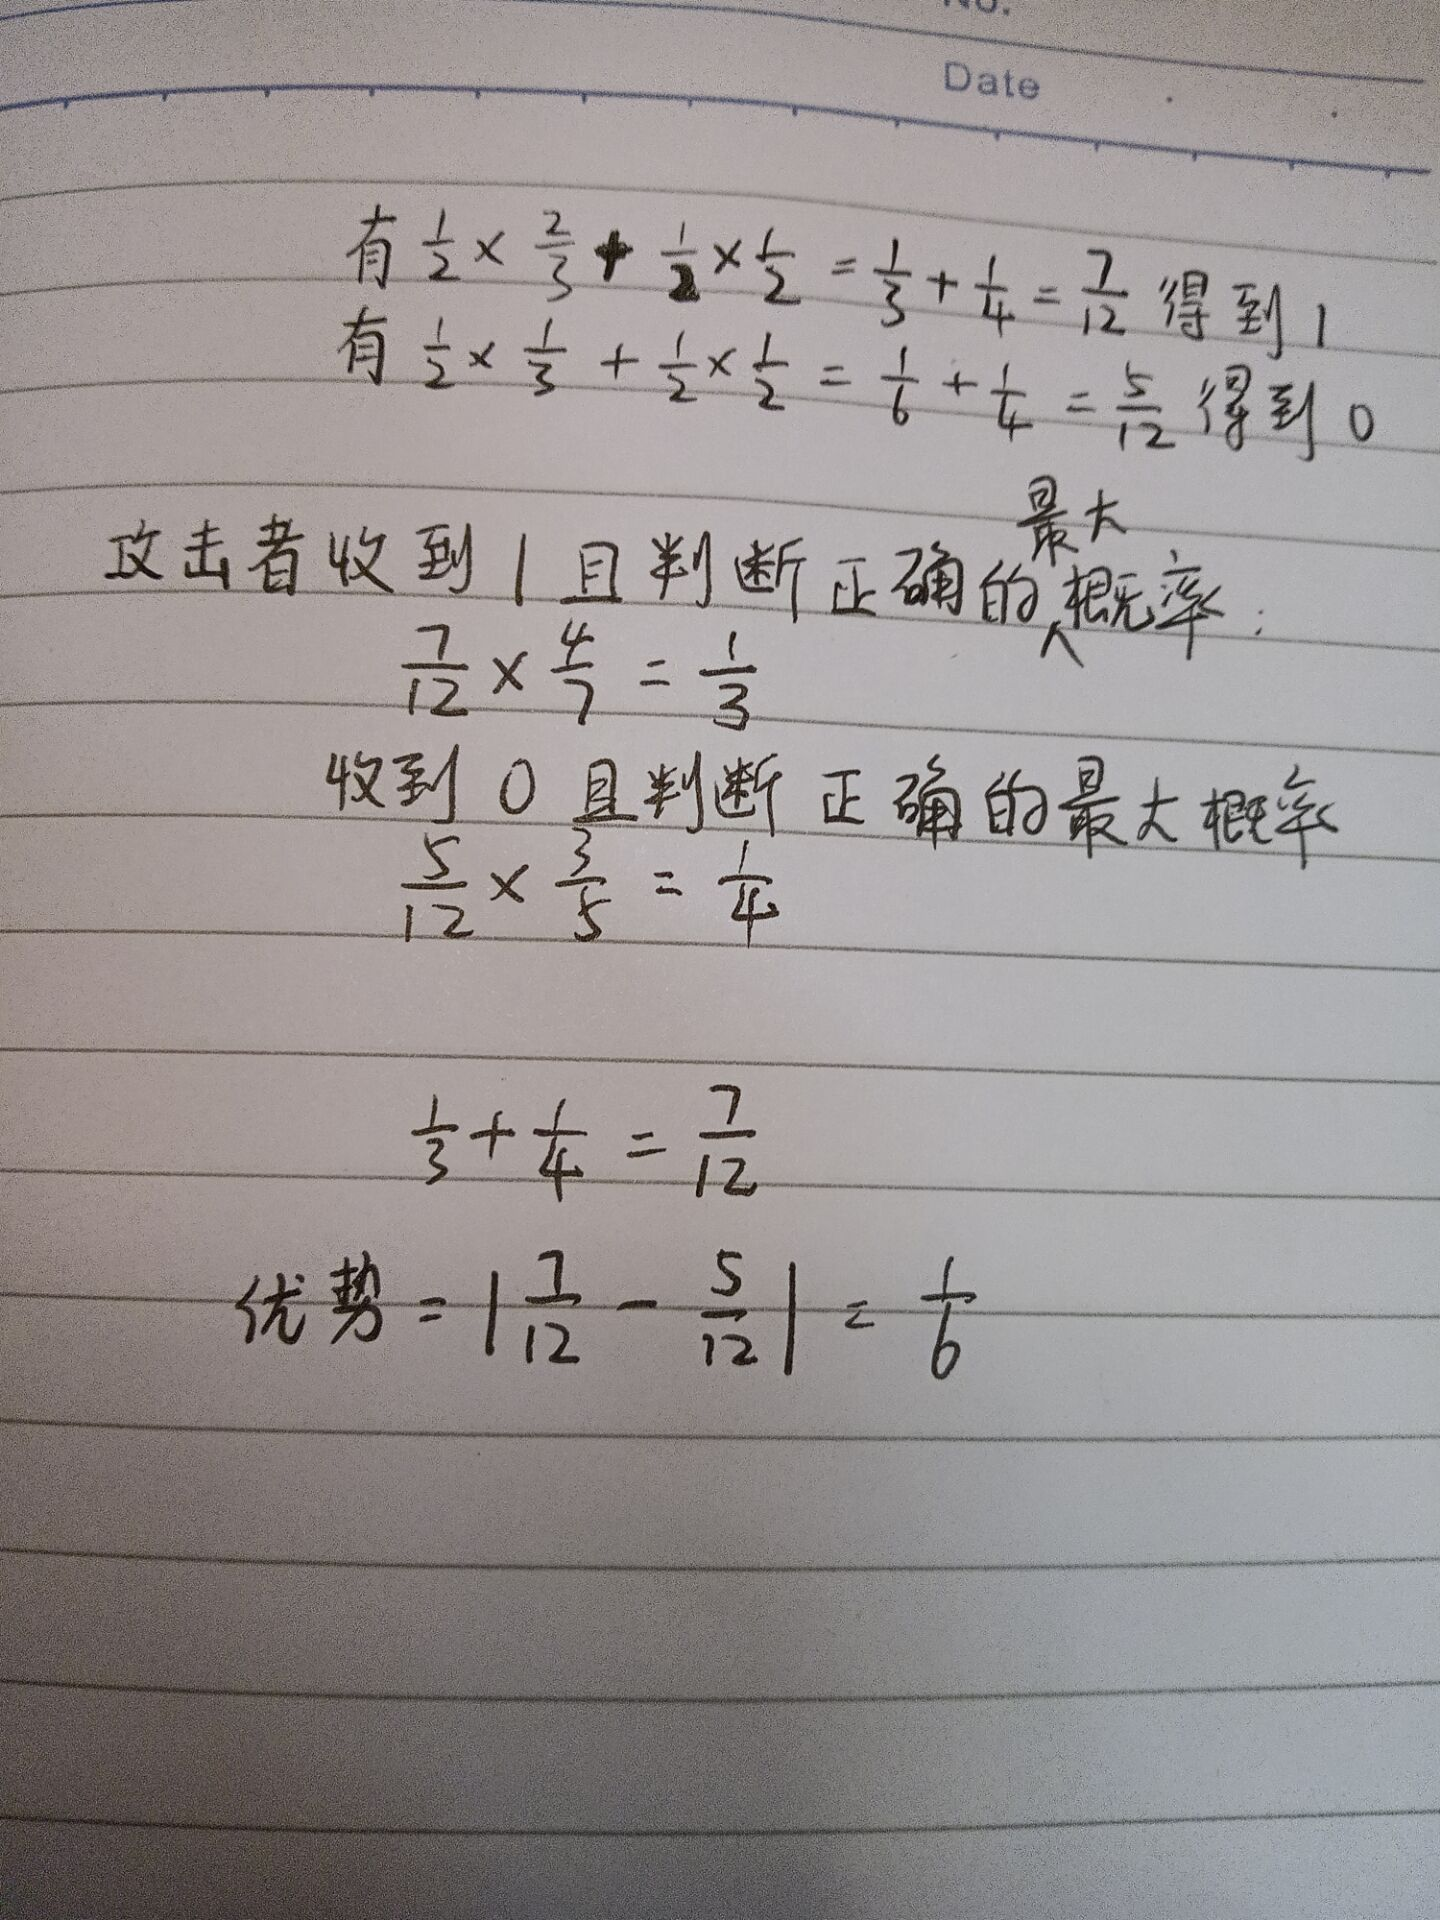 No.
Date
有 1/2 × 2/3 + 1/2 × 1/2 = 1/3 + 1/4 = 7/12 得到1
有 1/2 × 1/3 + 1/2 × 1/2 = 1/6 + 1/4 = 5/12 得到0
攻击者收到1且判断正确的最大概率:
7/12 × 4/7 = 1/3
收到0且判断正确的最大概率
5/12 × 3/5 = 1/4
1/3 + 1/4 = 7/12
优势 = |7/12 - 5/12| = 1/6